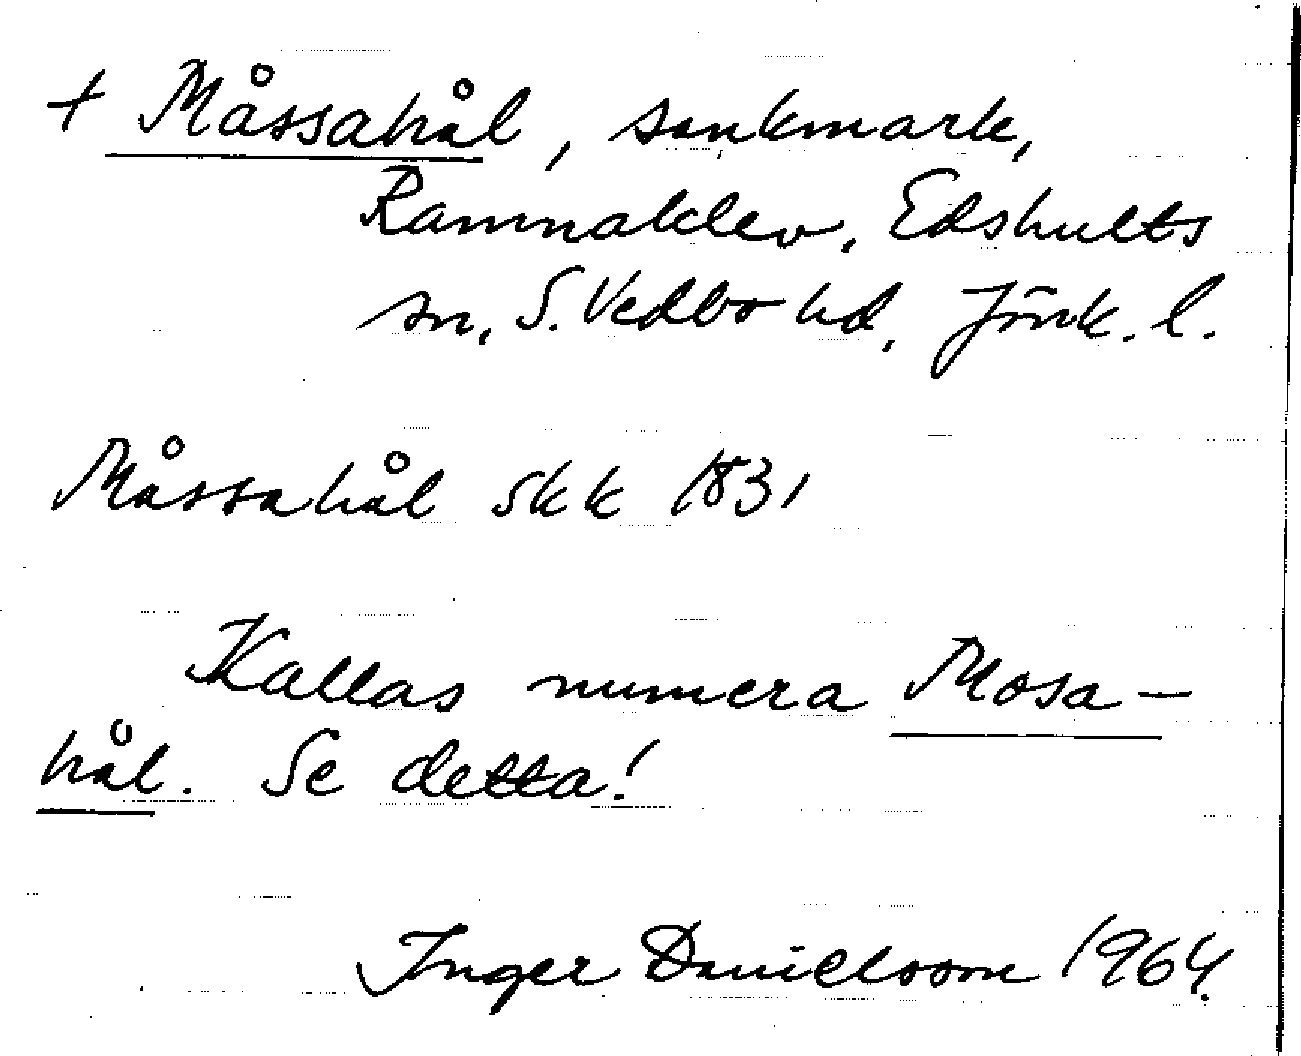 + Måssahål, sankmark,
Ramnaklev, Edshults
sn, S. Vedbo hd, Jönk. l.
Måssahål skk 1831
Kallas numera Mosa-
hål. Se detta!
Inger Danielsson 1964.